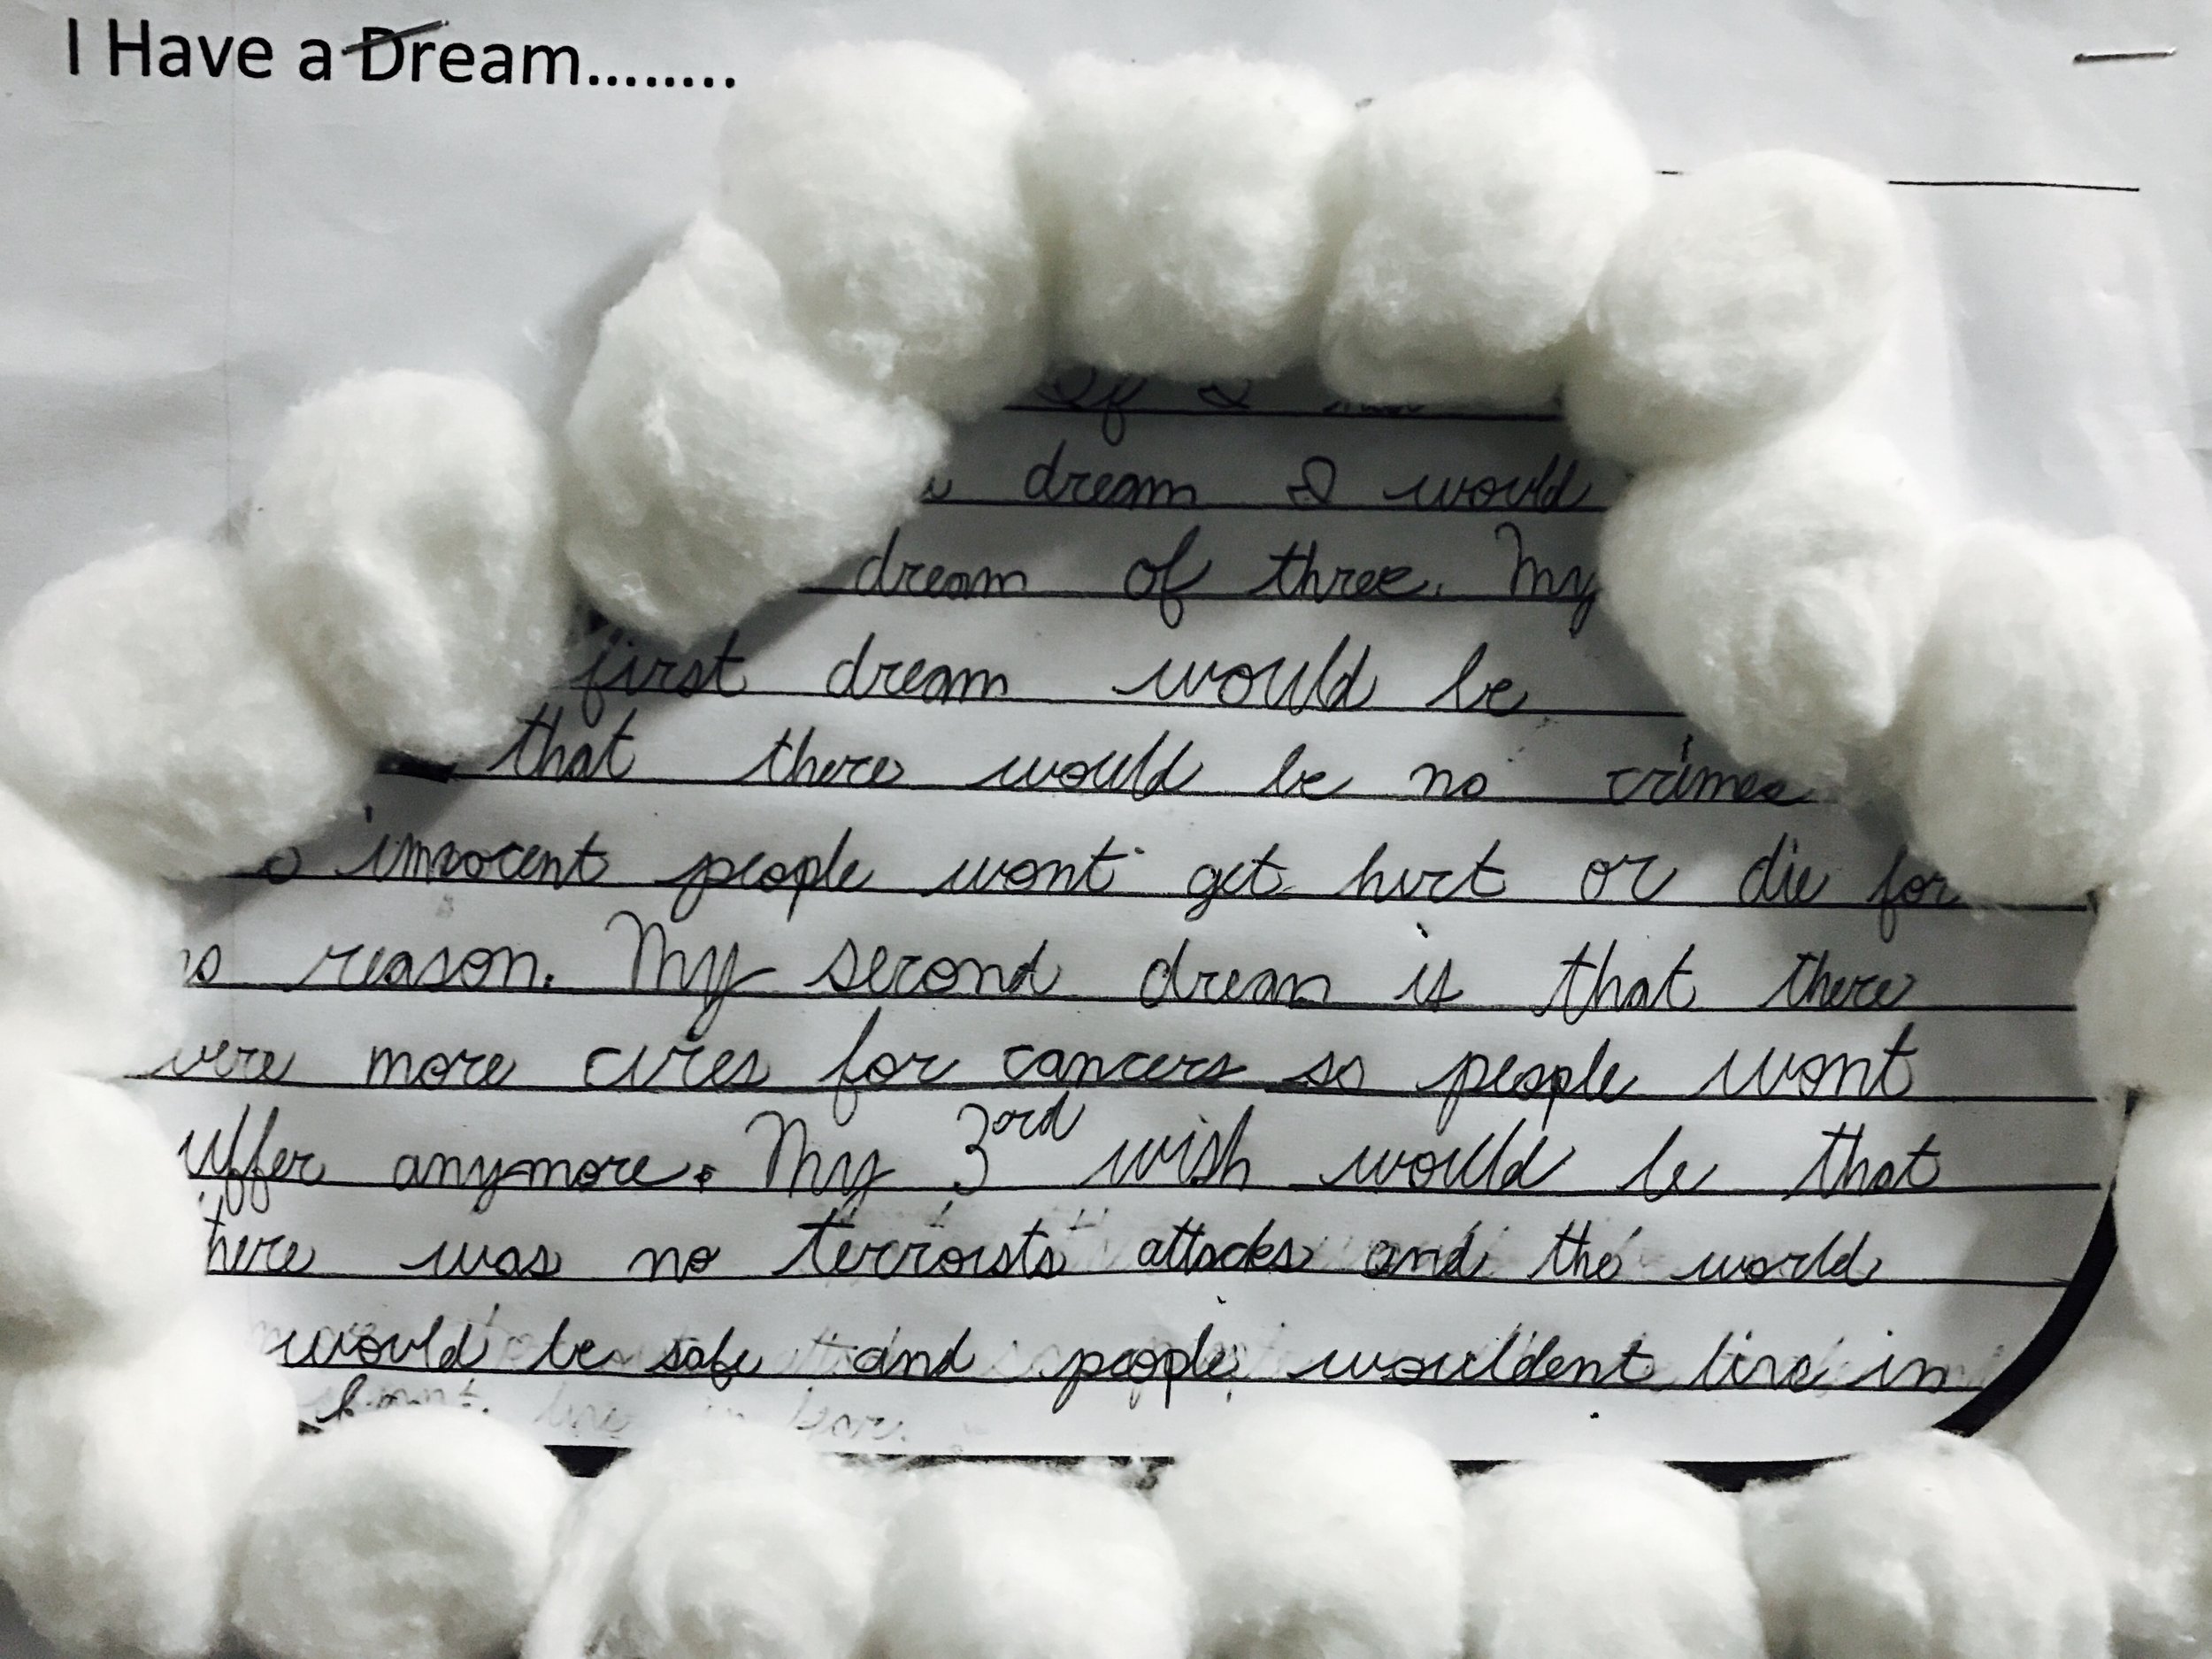 I Have a Dream........
If I had
a dream I would
dream of three. My
first dream would be
that there would be no crimes
so innocent people wont get hurt or die for
no reason. My second dream is that there
were more cures for cancers so people wont
suffer anymore. My 3ord wish would be that
there was no terroists attacks and the world
would be safe and people wouldent live in